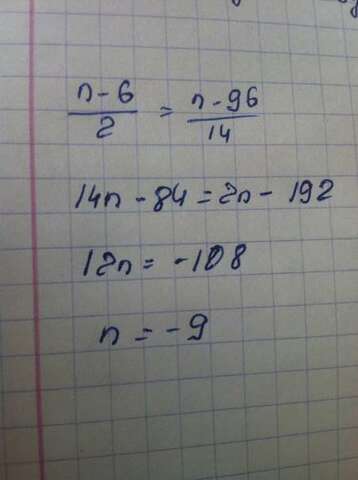 n-6/2 = n-96/14
14n - 84 = 2n - 192
12n = -108
n = -9